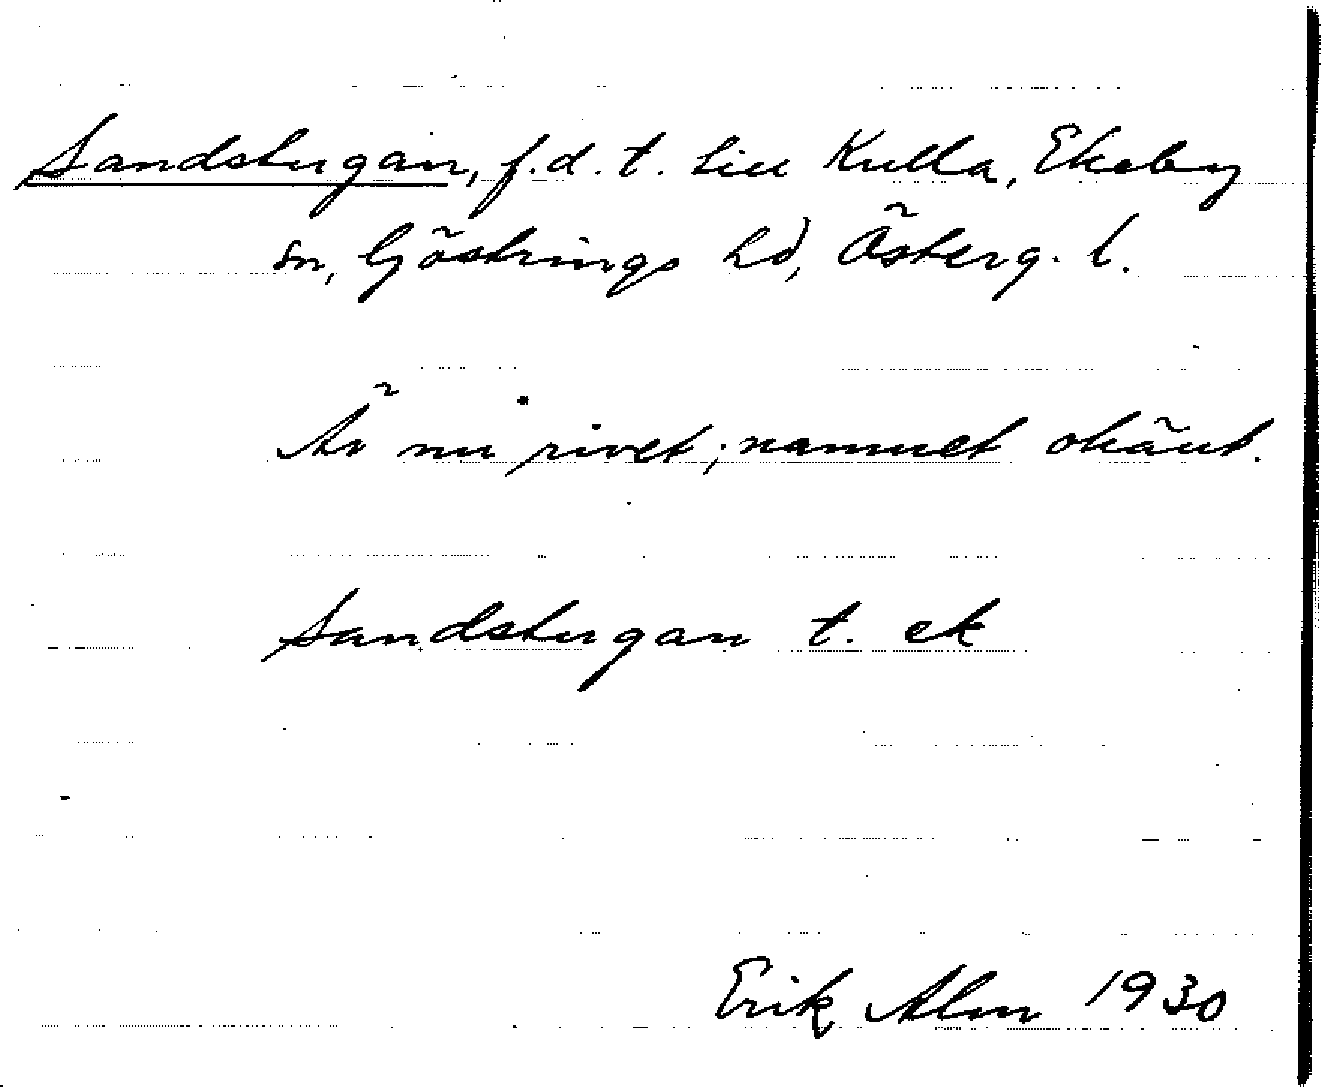 Sandstugan, f.d. t. Lill Kulla, Ekeby
sn, Göstrings hd, Österg. l.
Är nu rivet; namnet okänt.
Sandstugan t. ek
Erik Alm 1930